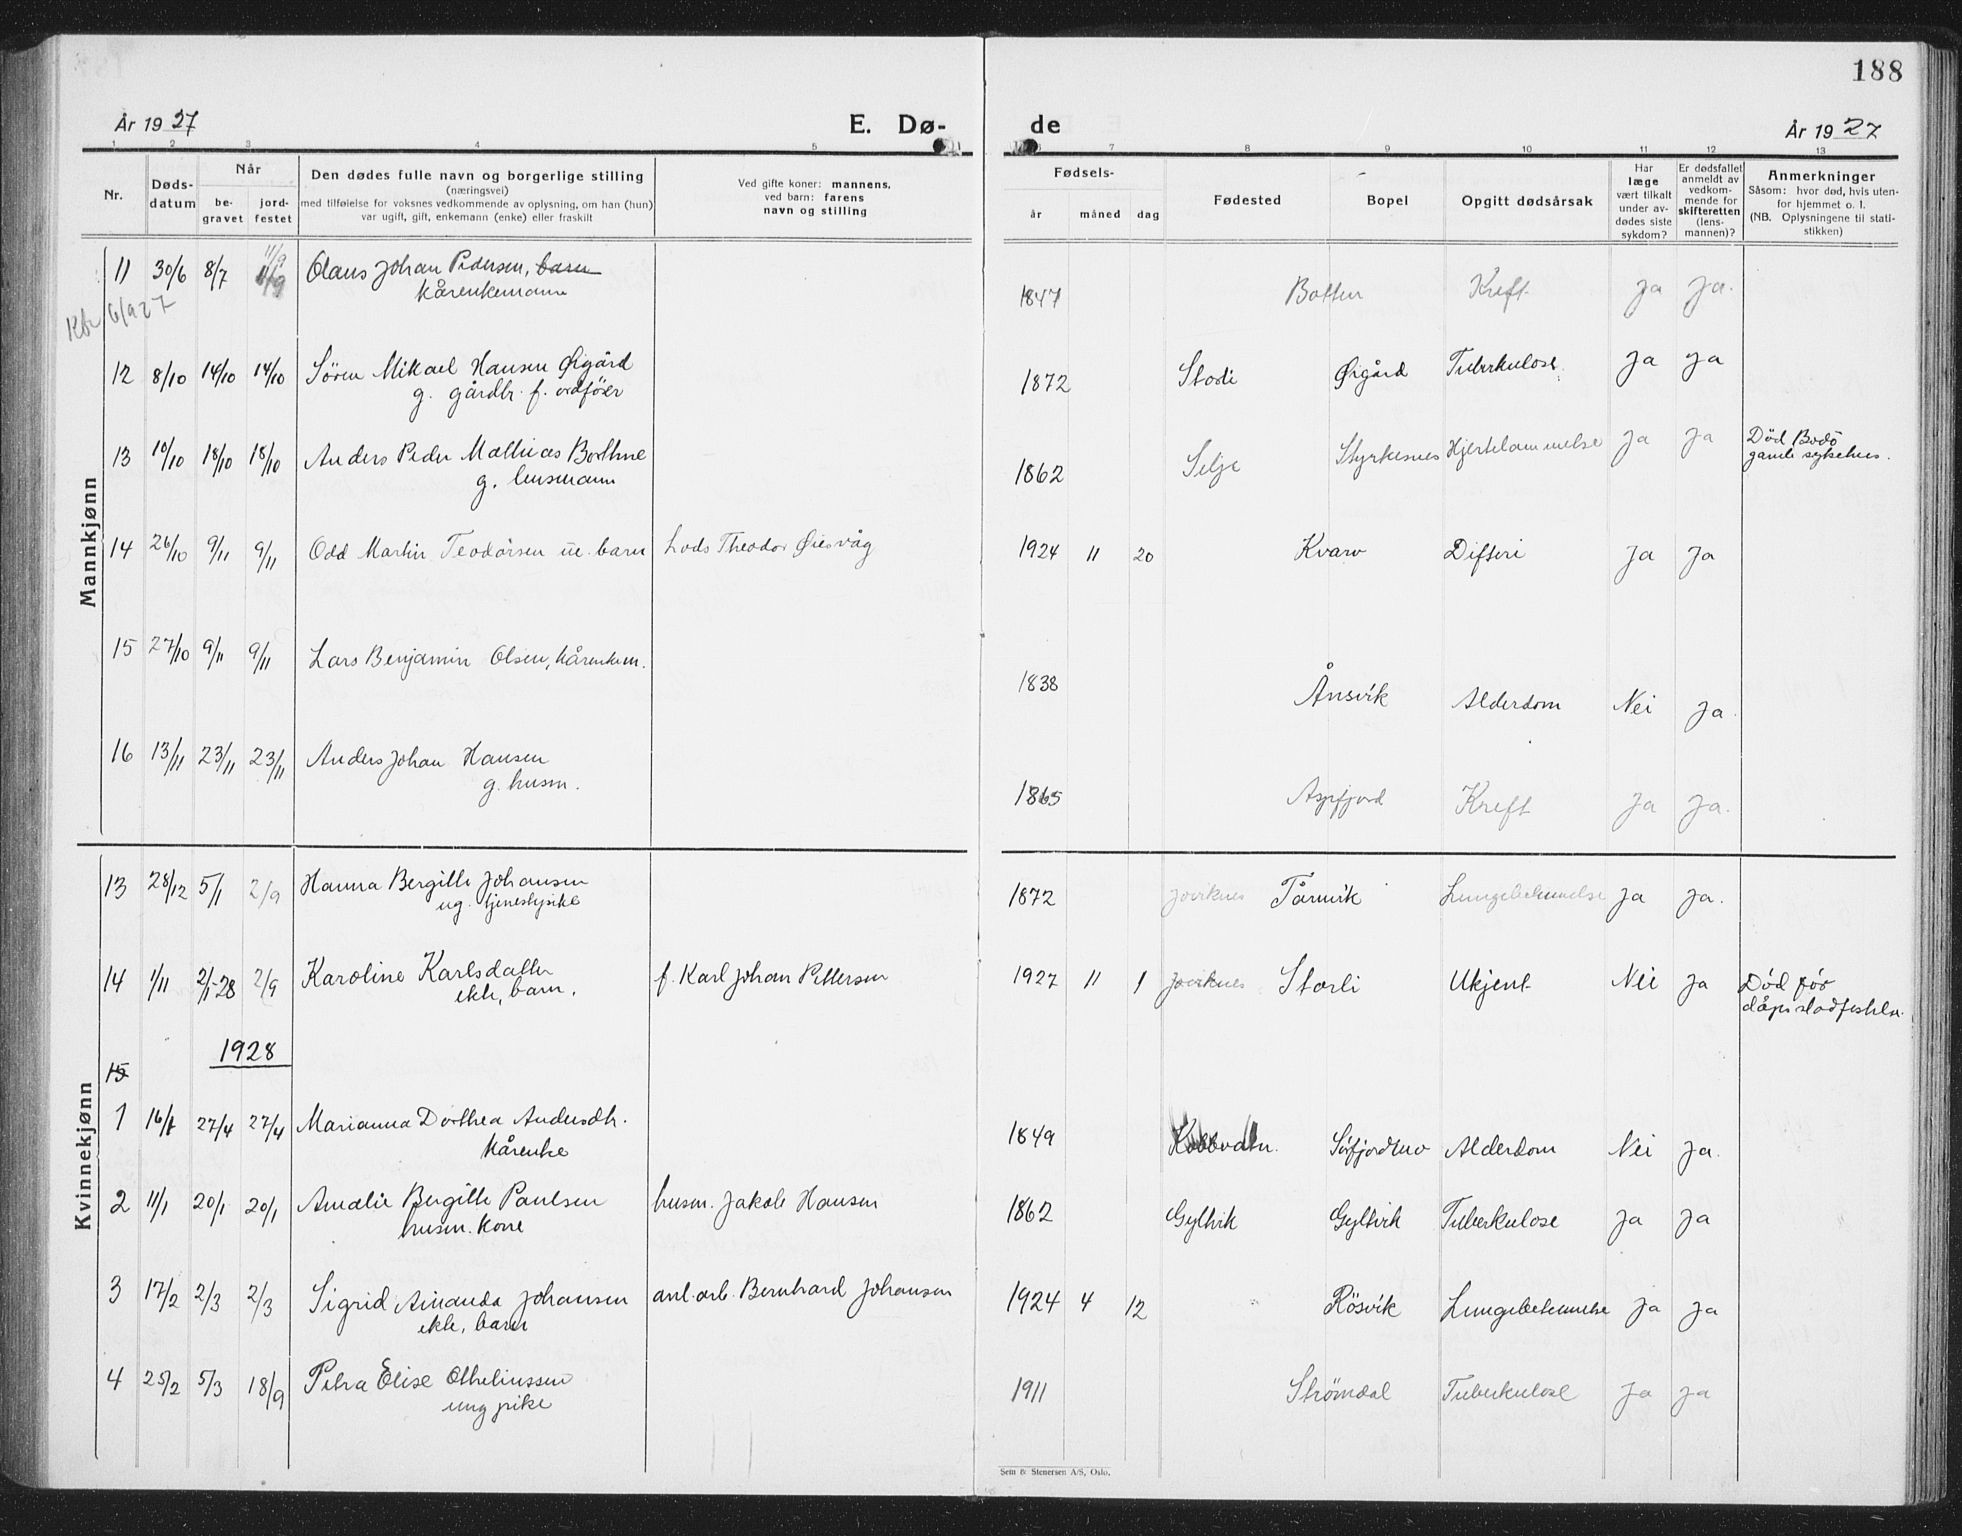 188
År 1927 E. Dø- de År 1927
1 2 3 4 5 6 7 8 9 10 11 12 13
Nr. Døds-datum Når be-gravet jord-festet Den dødes fulle navn og borgerlige stilling (næringsvei) med tilføielse for voksnes vedkommende av oplysning, om han (hun) var ugift, gift, enkemann (enke) eller fraskilt Ved gifte koner: mannens, ved barn: farens navn og stilling Fødsels- år måned dag Fødested Bopel Opgitt dødsårsak Har læge vært tilkalt under av-dødes siste sykdom? Er dødsfallet anmeldt av vedkom-mende for skifteretten (lens-mannen)? Anmerkninger Såsom: hvor død, hvis uten-for hjemmet o. l. (NB. Oplysningene til stati-stikken)
Mannkjønn
11 30/6 8/7 11/9 Olaus Johan Pedersen, barn 1847 Botten Kreft Ja Ja.
kårenkemann
12 8/10 14/10 14/10 Sören Mikael Hansen Øigård 1872 Stordi Øigård Tuberkulose. Ja Ja
g. gårdbr. f. ordförer
13 10/10 18/10 18/10 Anders Peder Mathias Borthne 1862 Selje Styrkesnes Hjertelammelse Ja Ja Död Bodö
g. lensmann gamle sykehus.
14 26/10 9/11 9/11 Odd Martin Teodorsen ue. barn Lods Theodor Øiesvåg 1924 11 20 Kvarv Difteri Ja Ja
15 27/10 9/11 9/11 Lars Benjamin Olsen, kårenkem. 1838 Ånsvik Alderdom Nei Ja.
16 13/11 23/11 23/11 Anders Johan Hansen 1865 Aspfjord Kreft Ja Ja.
g. husm.
Kvinnekjønn
13 28/12 5/1 2/9 Hanna Bergitte Johansen 1872 Tårnvik Lungebetennelse Ja Ja.
ug. tjenestepike
14 1/11 2/1-28 2/9 Karoline Karlsdatter f. Karl Johan Pettersen 1927 11 1 Storli Ukjent Nei Ja Död för
ekte, barn. dåpsstadfestelse.
1928
15
1 16/1 27/4 27/4 Marianna Dorthea Andersdtr. 1849 Kobbvatn. Sørfjordmo Alderdom Nei Ja.
kårenke
2 11/1 20/1 20/1 Amalie Bergitte Paulsen husm. Jakob Hansen 1862 Gyltvik Gyltvik Tuberkulose Ja Ja
husm. kone
3 17/2 2/3 2/3 Sigrid Amanda Johansen anl. arb. Bernhard Johansen 1924 4 12 Rösvik Lungebetennelse Ja Ja
ekte, barn
4 25/2 5/3 18/9 Petra Elise Othelinssen 1911 Strömdal Tuberkulose Ja Ja
ung pike
Sem & Stenersen A/S, Oslo.